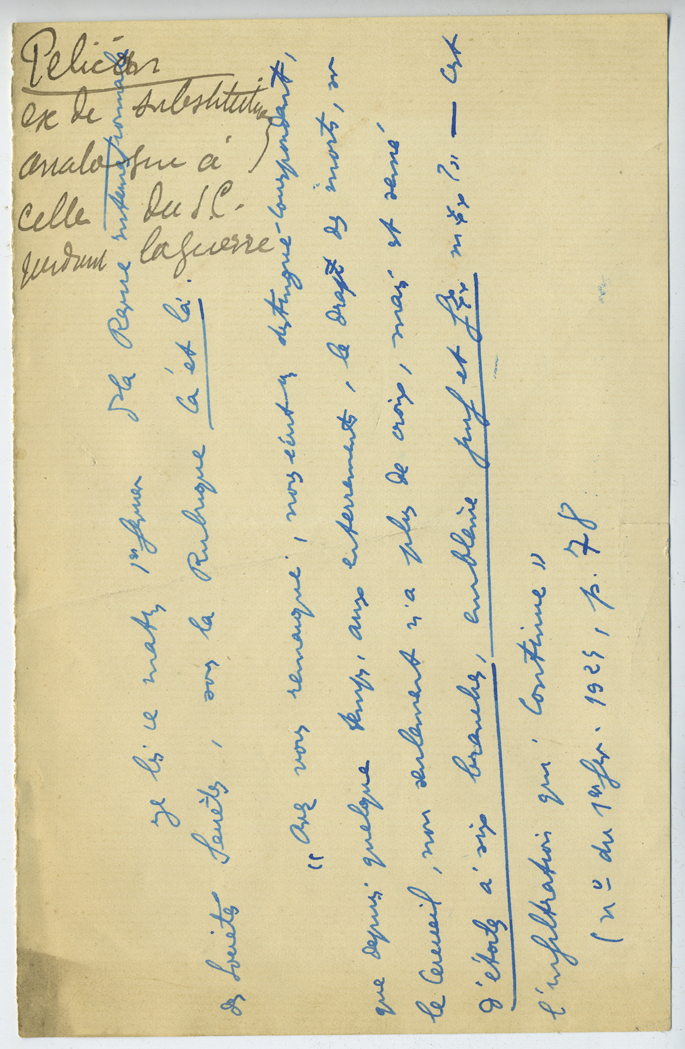 Pelican
ex de substitution
analogue à
celle du S.C.
pendant la guerre
Je lis ce matin 1er février ds la Revue internationale
des Sociétés Secrètes, sous la Rubrique çà et là :
"Avez vous remarqué, nous écrit un distingué correspondant,
que depuis quelque temps, aux enterrements, le drap des morts, sur
le cercueil, non seulement n'a plus de croix, mais est semé
d'étoiles à six branches, emblème juif et — C'est
l'infiltration qui continue"
(n° du 1er fév. 1925, p. 78